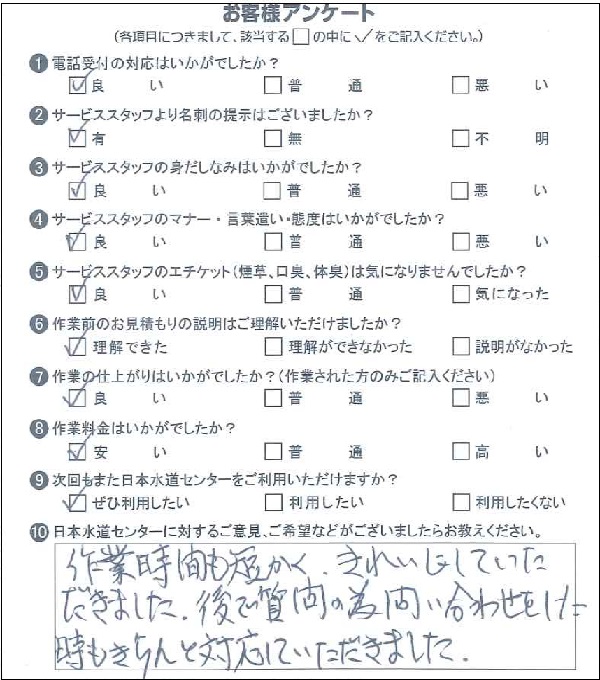 お客様アンケート
(各項目につきまして、該当する□の中に✓をご記入ください。)
❶電話受付の対応はいかがでしたか?
☑良い □普通 □悪い
❷サービススタッフより名刺の提示はございましたか?
☑有 □無 □不明
❸サービススタッフの身だしなみはいかがでしたか?
☑良い □普通 □悪い
❹サービススタッフのマナー・言葉遣い・態度はいかがでしたか?
☑良い □普通 □悪い
❺サービススタッフのエチケット(煙草、口臭、体臭)は気になりませんでしたか?
☑良い □普通 □気になった
❻作業前のお見積もりの説明はご理解いただけましたか?
☑理解できた □理解ができなかった □説明がなかった
❼作業の仕上がりはいかがでしたか?(作業された方のみご記入ください)
☑良い □普通 □悪い
❽作業料金はいかがでしたか?
☑安い □普通 □高い
❾次回もまた日本水道センターをご利用いただけますか?
☑ぜひ利用したい □利用したい □利用したくない
❿日本水道センターに対するご意見、ご希望などがございましたらお教えください。
作業時間も短かく、きれいにしていた
だきました。後で質問の為問い合わせをした
時もきちんと対応していただきました。